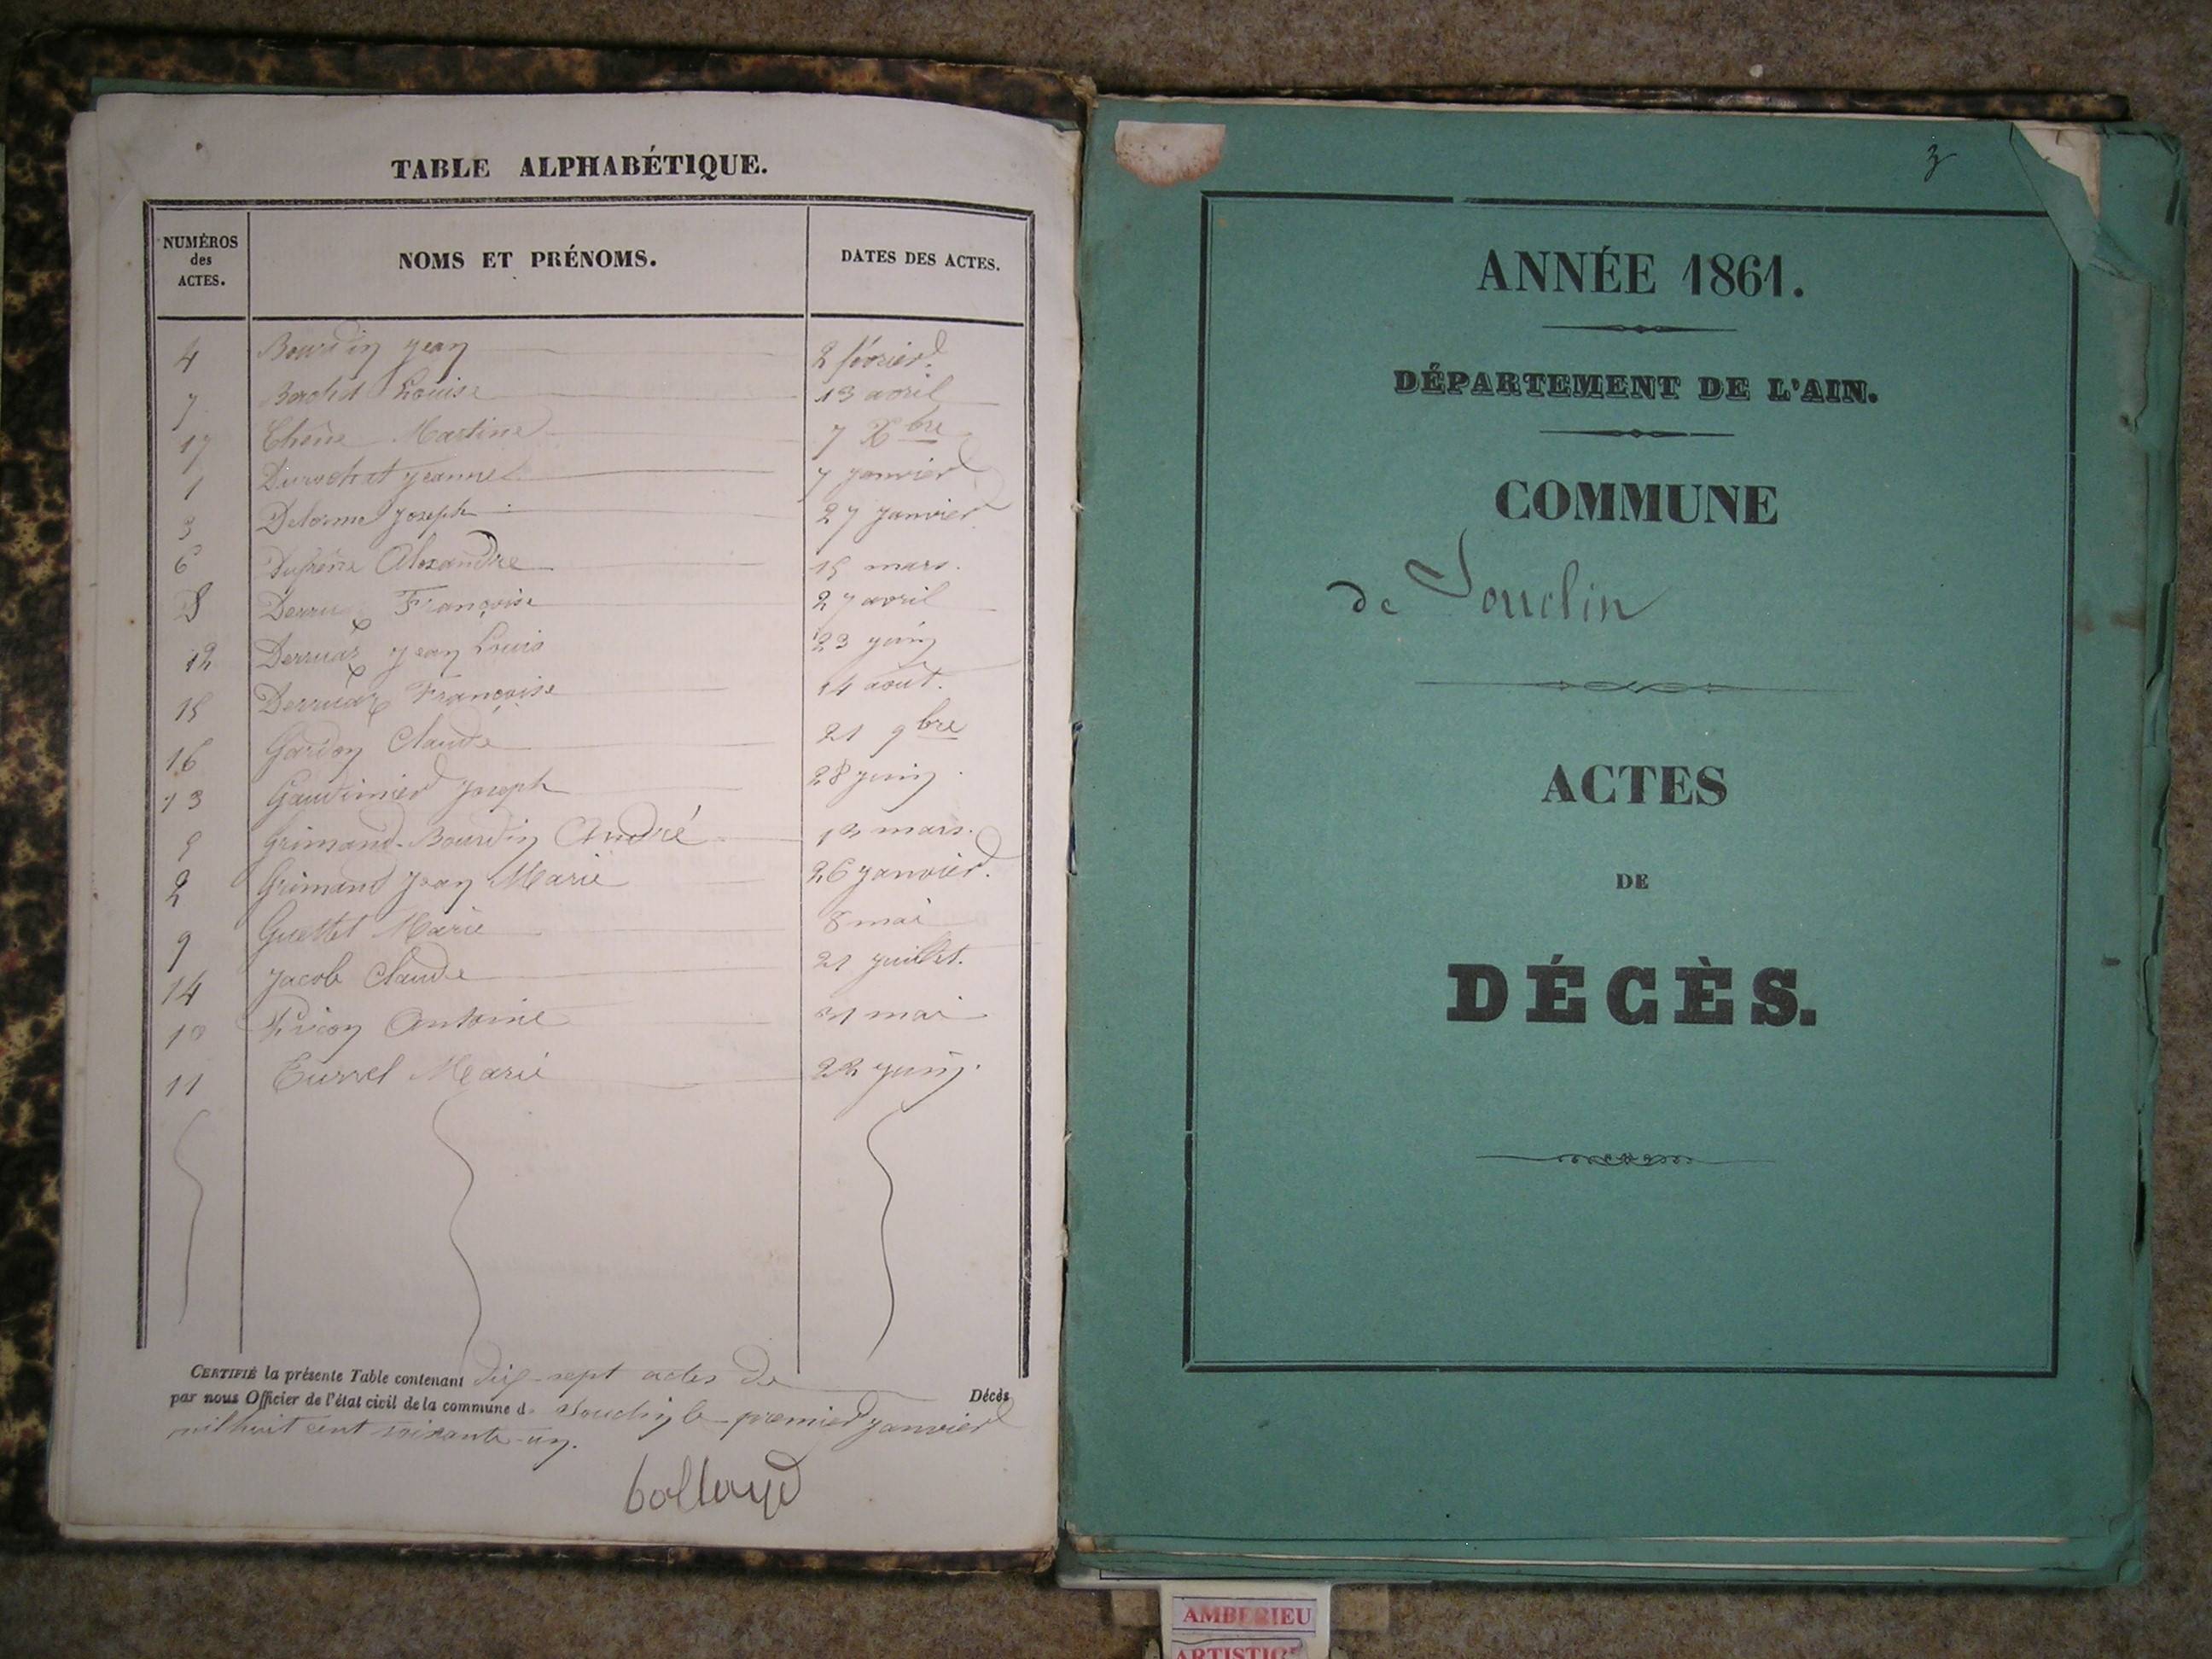 TABLE ALPHABÉTIQUE.
NUMÉROS des ACTES. NOMS ET PRÉNOMS. DATES DES ACTES.
4 Bourdin Jean 2 février
7 Louise 13 avril
17 Chêne Martine 7 Xbre
1 Durochat Jeanne 7 janvier
3 Delorme Joseph 27 janvier
6 Alexandre 15 mars.
8 Françoise 27 avril
12 Derruaz Jean Louis 23 juin
15 Derruaz Françoise 14 août.
16 Gardon Claude 21 9bre
13 Joseph 28 juin
5 Grimand-Bourdin André 13 mars.
2 Grimand Jean Marie 26 janvier.
9 Guettet Marie 8 mai
14 Jacob Claude 21 juillet.
10 Antoine 31 mai
11 Marie 22 juin.
CERTIFIÉ la présente Table contenant dix-sept actes de Décès
par nous Officier de l'état civil de la commune d Souclin le premier janvier
mil huit cent soixante-un.
bolland
3
ANNÉE 1861.
DÉPARTEMENT DE L'AIN.
COMMUNE
de Souclin
ACTES
DE
DÉCÈS.
AMBERIEU